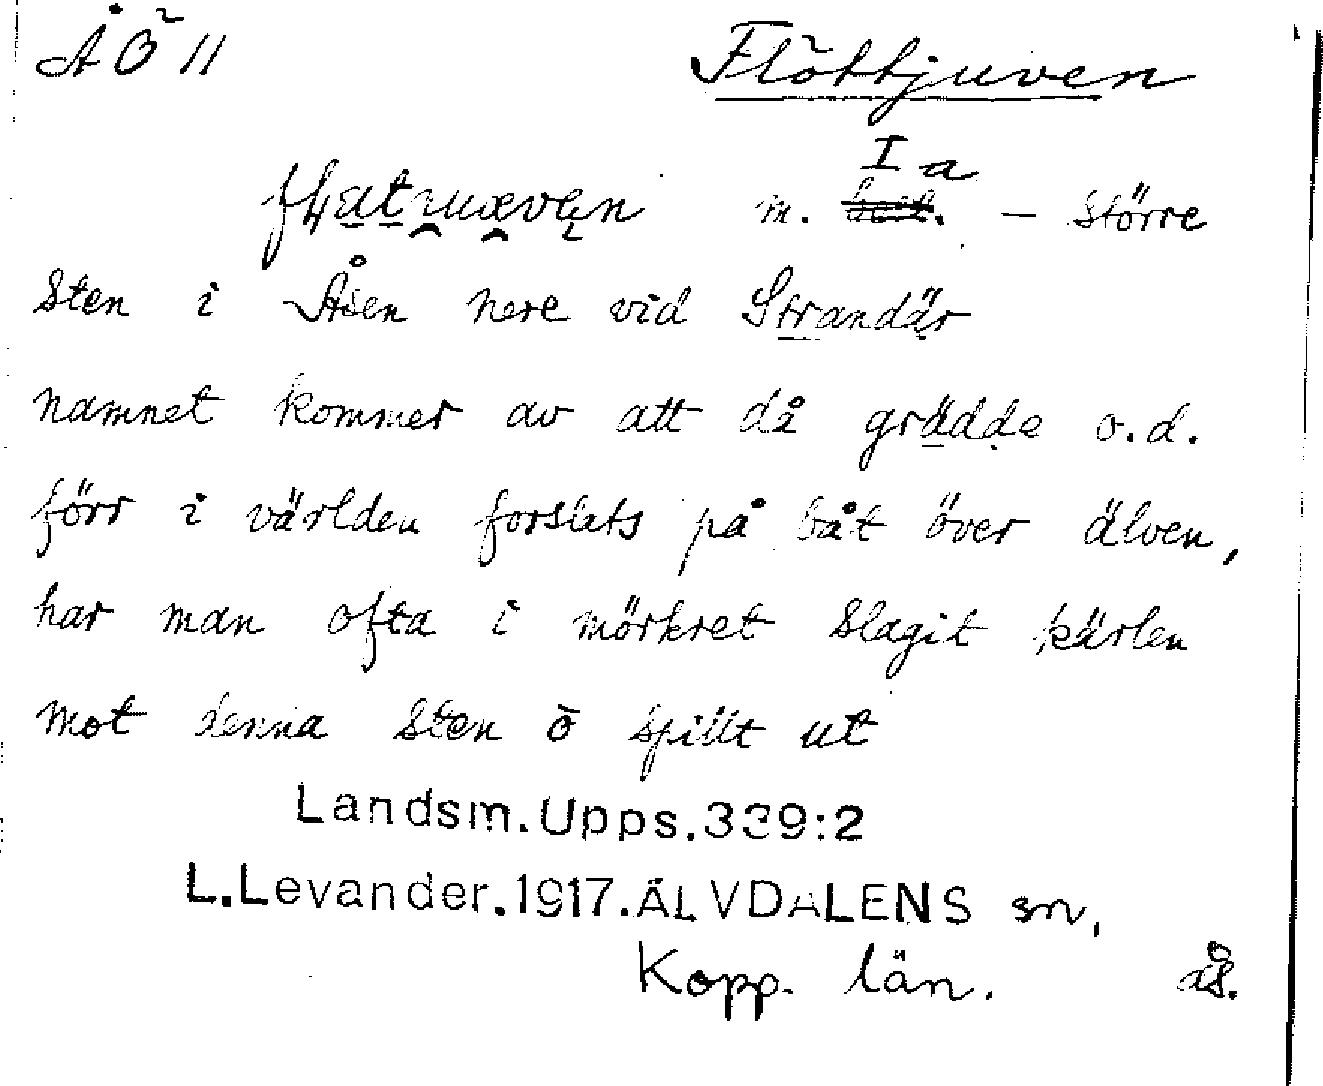 ÅÖ 11 Flöttjuven
m. I a – större
sten i Åsen nere vid Strandär
namnet kommer av att då grädde o.d.
förr i världen forslats på båt över älven,
har man ofta i mörkret slagit kärlen
mot denna sten o spillt ut
Landsm.Upps.339:2
L.Levander.1917.ÄLVDALENS sn,
Kopp. län. ås.